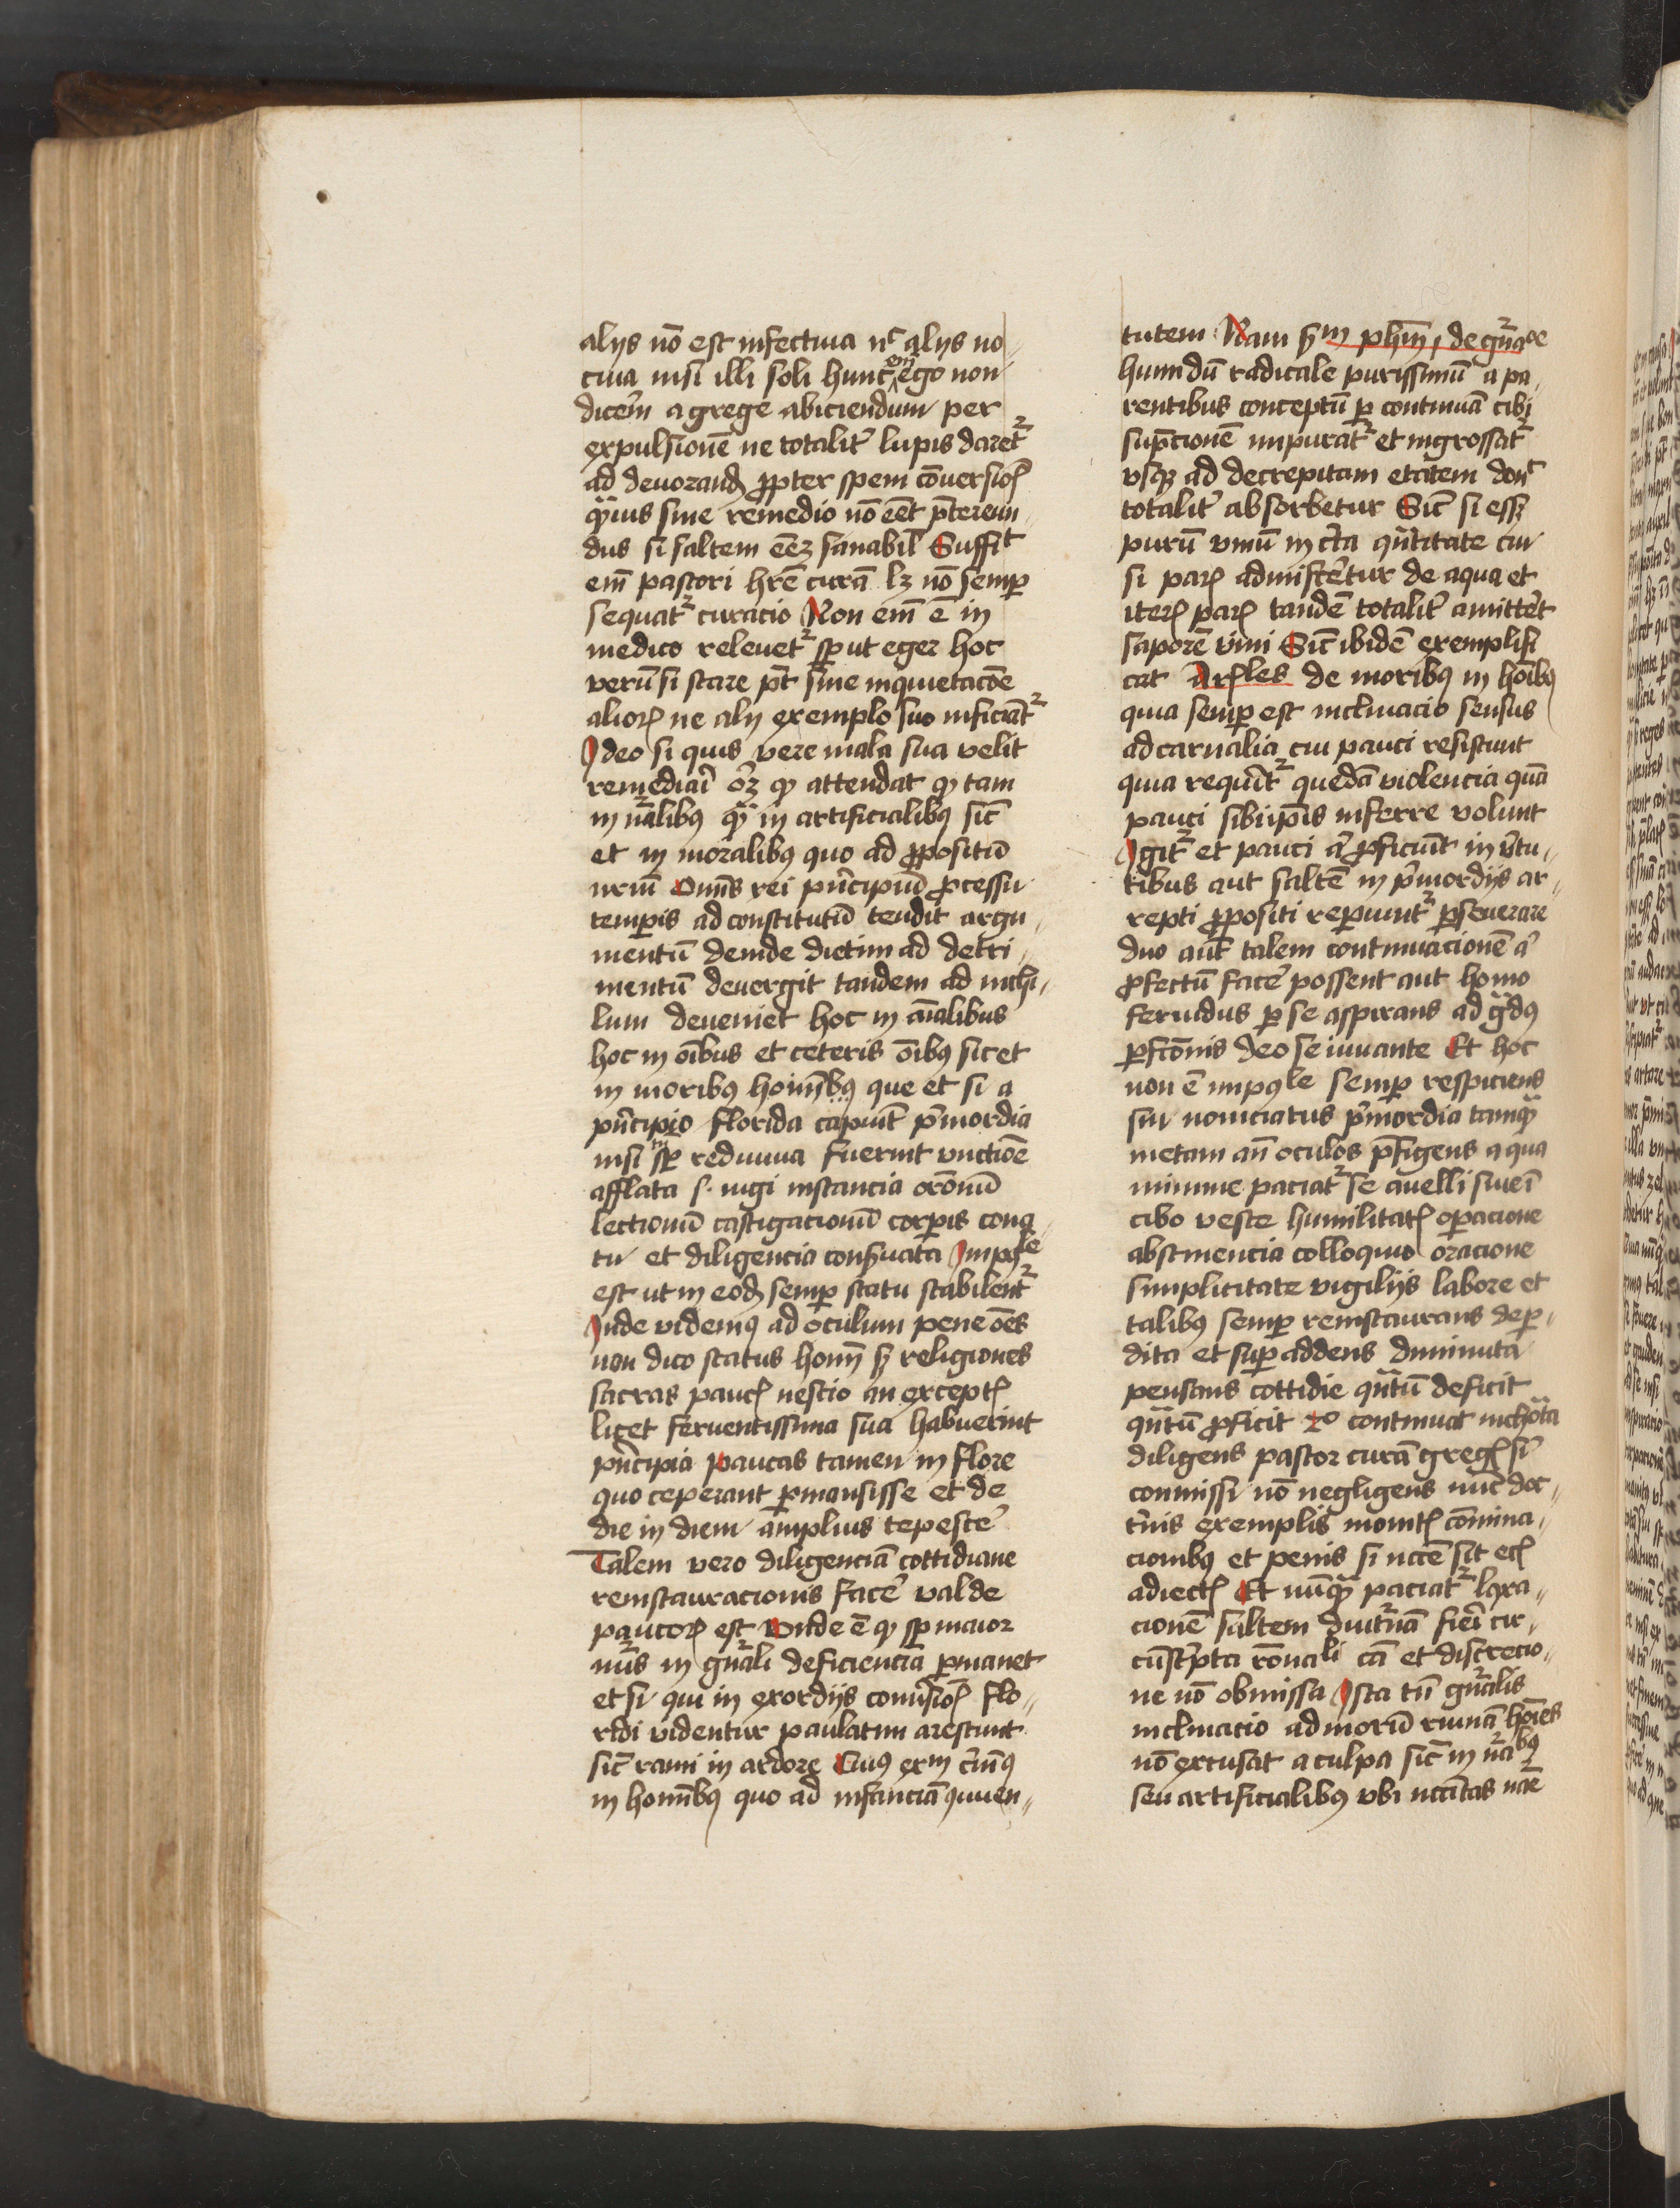 alijs nō est infectiua nͨ alijs no⸗
ciua nisi illi soli hunc em̄ ego non
dicerē a grege abiciendum per
expulsionē ne totalit̉ lupis daretᷣ
ad deuorand̄ ꝓpter spem cōuersioꝭ
q̈uis sine remedio nō eēt p̄tereun⸗
dus si saltem eēꝫ sanabil̄ Suffiᵗ
em̄ pastori hr̄e curā lꝫ nō semꝑ
sequatᷣ curacio Non em̄ ē in
medico releuetᷣ sꝑ ut eger hoc
verū si stare pt̄ sine inquietacōe
alioꝝ ne alij exemplo suo inficiātᷣ
Ideo si quis vere mala sua velit
remediari oꝫ ꝙ attendat ꝙ tam
in nᷓalibꝰ q̈ in artificialibꝰ sic̄
et in moralibꝰ quo ad ꝓpositū
nr̄m Omīs rei pͥncipiū ꝓcessu
temꝑis ad constitutū tendit argu⸗
mentū deinde dietim ad detri⸗
mentū deuergit tandem ad nichi⸗
lum deueniet hoc in aīalibus
hoc in oībus et ceteris oībꝰ sic et
in moribꝰ hoīnibꝰ que et si a
pͥncipio florida capiūt pͥmordia
nisi sꝑ rediuiua fuerint vnctiōe
afflata s. iugi instancia orōnū
lectionū castigacionū corꝑis cona⸗
tu et diligencia conẜuata Impoˡᵉ
est ut in eod̄ semꝑ statu stabilentᷣ
Inde videmꝰ ad oculum pene oēs
non dico status hoīm sꝫ religiones
sacras paucꝭ nescio an exceptꝭ
licet feruentissima sua habuerint
pͥncipia paucas tamen in flore
quo ceperant ꝑmansisse et de
die in diem amplius tepescer̄
Talem vero diligenciā cottidiane
reinstauracionis facer̄ valde
paucoꝝ est Vnde ē ꝙ sꝑ maior
nūs in gn̄ali deficiencia ꝑmanet
et si qui in exordijs conūsioꝭ flo⸗
ridi videntur paulatim arescunt
sic̄ rami in ardore Cuiꝰ exᵐ cͥnimꝰ
in hoīnibꝰ quo ad infanciā iuuen⸗
tutem Nam sᵐ pħm, de gn̄acᵒᵉ
humidū radicale purissimū a pa⸗
rentibus conceptū ꝑ continuā cibi
sūpcionē impuratᷣ et ingrossatᷣ
vsqꝫ ad decrepitam etatem donͨ
totalit̉ absorbetur Sic̄ si essꝫ
purū vinū in c̉ta qn̄titate cui
si paꝝ admiscetur de aqua et
iteꝝ paꝝ tandē totalit̉ amitteret
saporē vini Sic̄ ibidē exemplifi
cat Arꝭles de moribꝰ in hoībꝰ
quia semꝑ est inclinacio sensus
ad carnalia cui pauci resistunt
quia requirit̄ quedā violencia quā
pauci sibiip̄is inferre volunt
Igitᷣ et pauci a ꝓficiūt in v̉tu⸗
tibus aut saltē in pͥmordijs ar⸗
repti ꝓpositi reperiuntᷣ ꝑseuerare
duo aut̄ talem continuacionē a
ꝓfectū facer̄ possent aut homo
feruidus ꝑ se aspirans ad gᷓdꝰ
ꝑfcōnis deo se iuuante Et hoc
non ē impoˡᵉ semꝑ respiciens
sui nouiciatus pͥmordia tamq̈
metam an̄ oculos p̄figens a qua
minime paciatᷣ se auelli siue ī
cibo veste humilitatꝭ oꝑacione
abstinencia colloquio oracione
simplicitate vigilijs labore et
talibꝰ semꝑ reinstaurans deꝑ⸗
dita et suꝑ addens diminuta
pensans cottidie qn̄tū deficit
qn̄tū ꝓficit 2ͦ continuat inchoata
diligens pastor curā gregꝭ sͥ
commissi nō negligens nūc doc⸗
t̉nis exemplis monitꝭ cōmina⸗
cionibꝰ et penis si nc̄cē sit eciꝭ
adiectꝭ Et nūq̈ paciatᷣ laxa⸗
cionē saltem diut̉nā fieri cir⸗
cūsc̉pta rōnali cā et discrecio⸗
ne nō obmissa Ista tn̄ gn̄alis
inclinacio ad moriū ruinā hoīes
nō excusat a culpa sic̄ in nᷓlibꝰ
seu artificialibꝰ vbi nc̄citas nāe